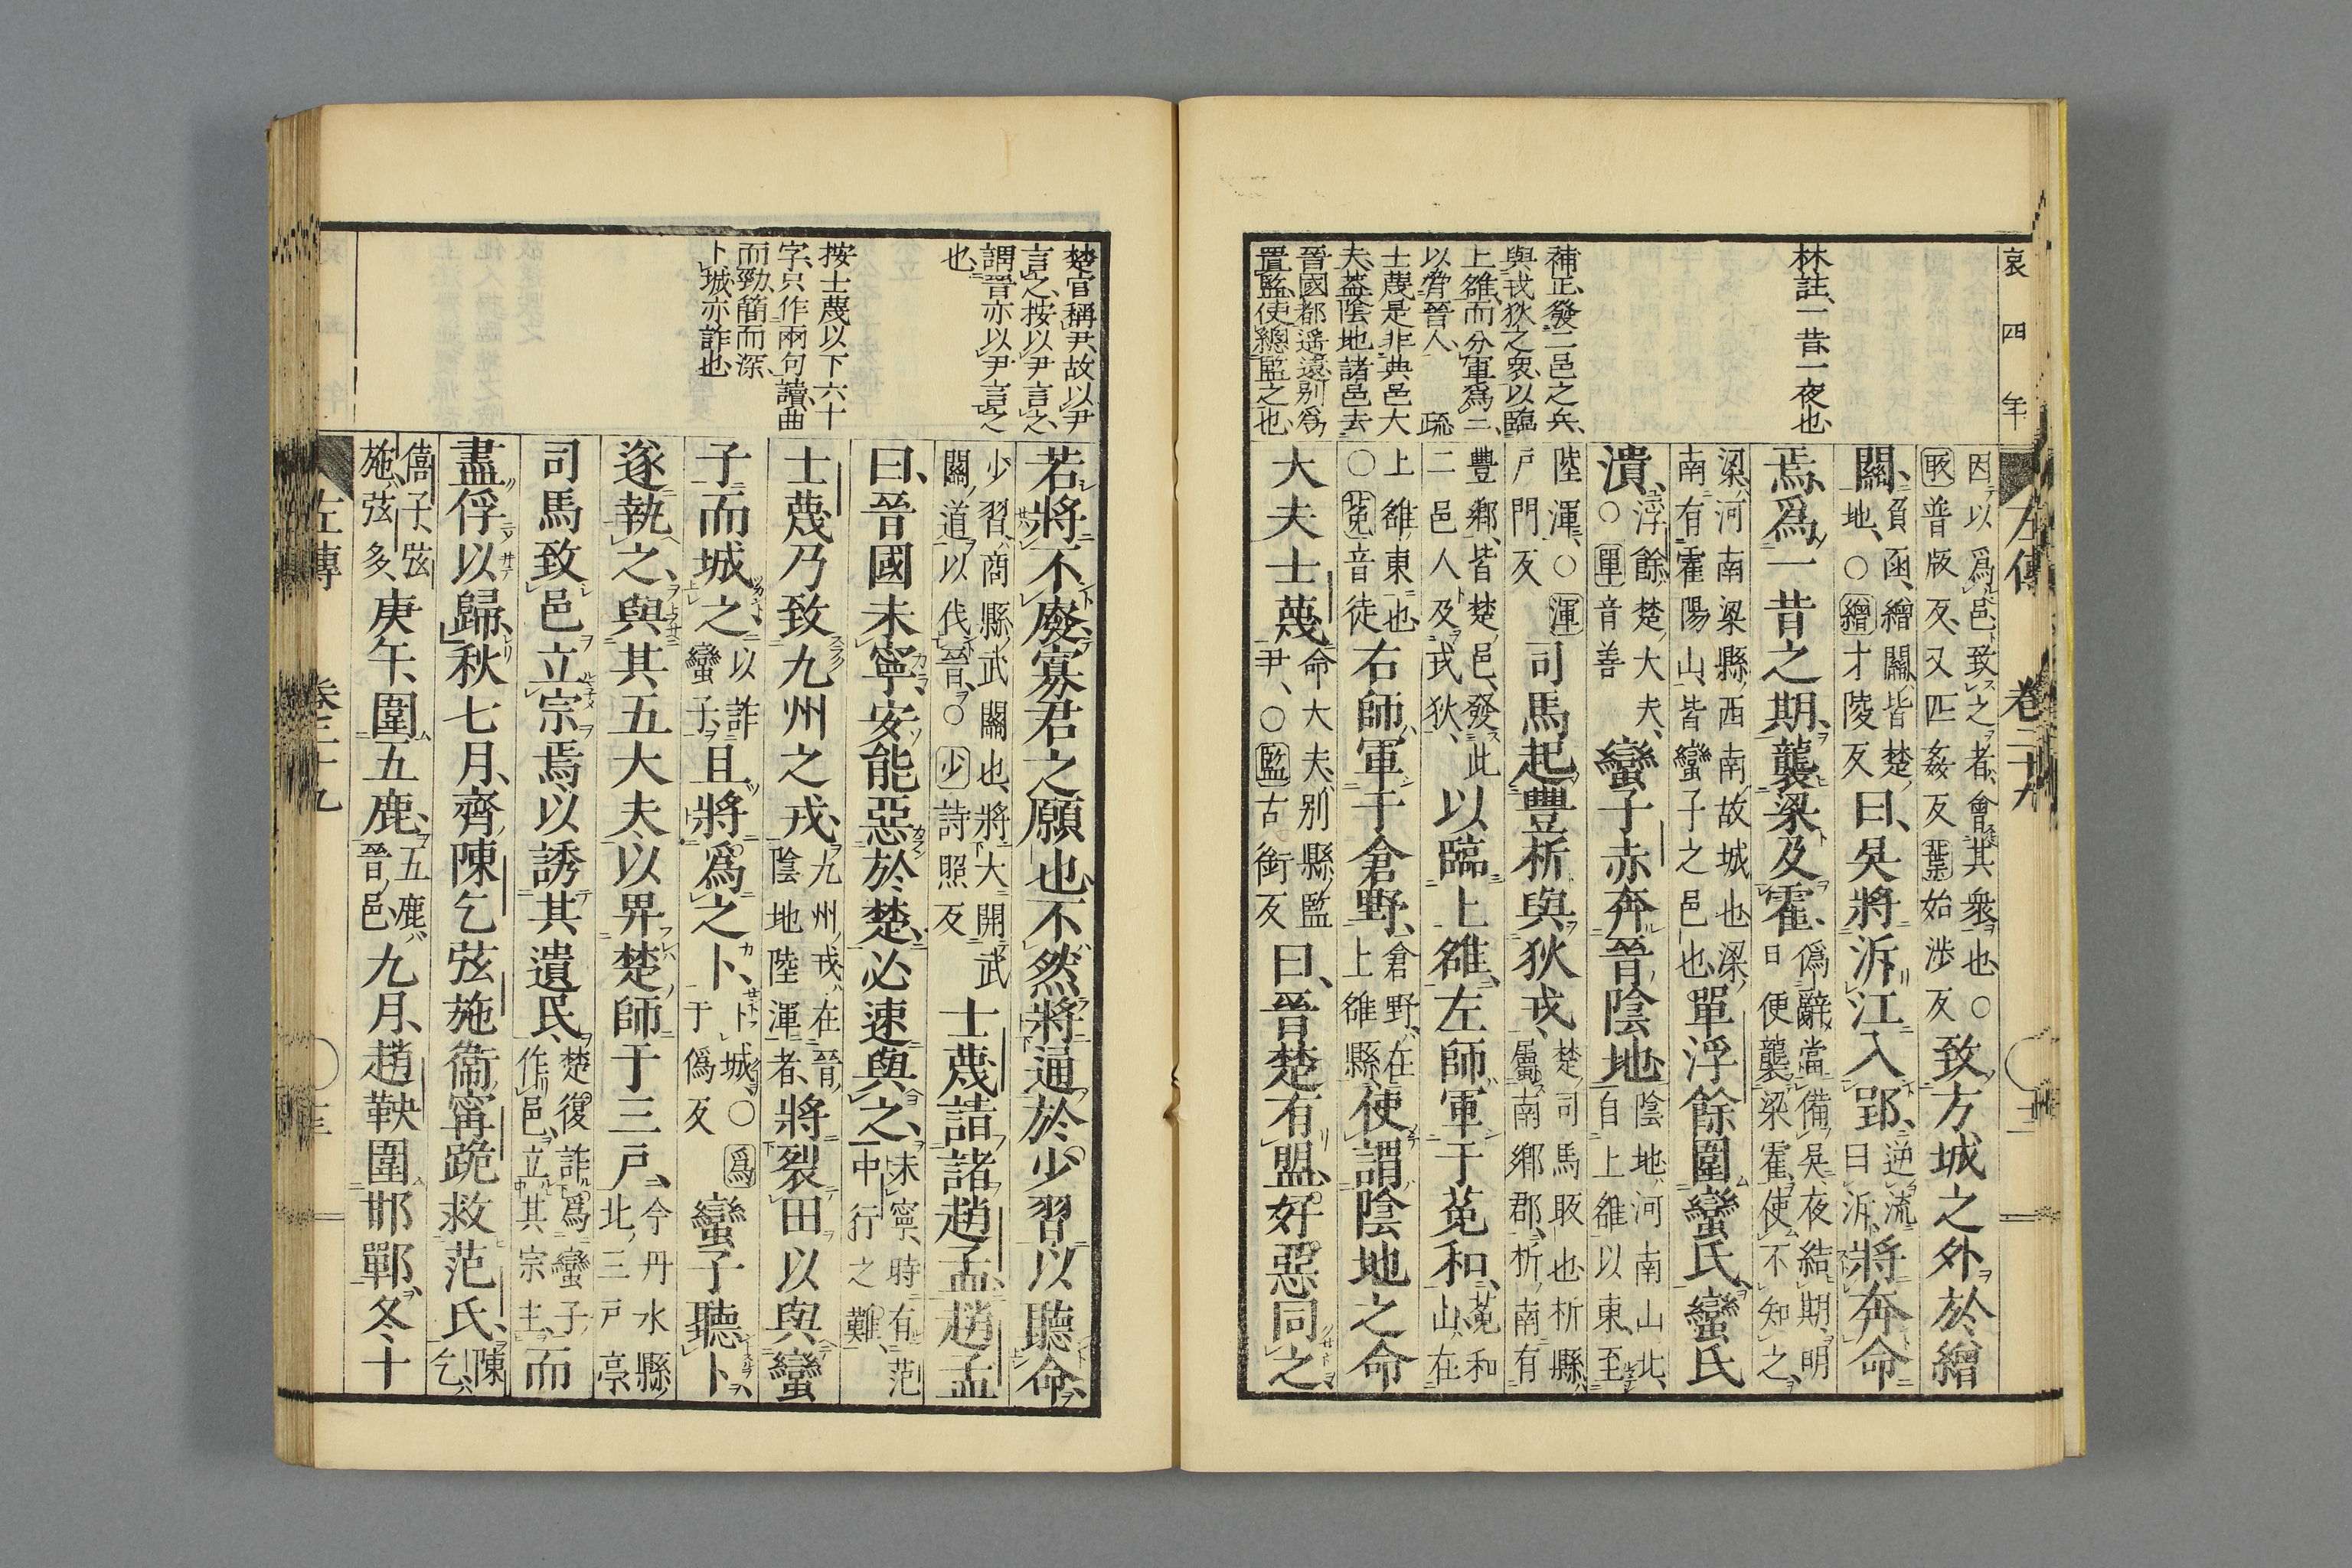 哀四年
左傳 卷二十九
林註、一昔、一夜也、
補正、發二邑之兵、
與戎狄之衆、以臨
上雒、而分軍爲二、
以脅晉人、 疏
士蔑是非典邑大
夫、蓋陰地諸邑去
晉國都遥遠、別爲
置監、使總監之也、
因以爲邑、致之者、會其衆也、○
㪋普版反、又匹姦反 葉始涉反
致方城之外於繒
關、
負函、繒關、皆楚
地、○繒才陵反
曰、吳將泝江入郢、
逆流
曰泝、
將奔命
焉、爲一昔之期、襲梁及霍、
僞辭當備吳、夜結期、明
日便襲梁霍、使不知之、
梁、河南梁縣西南故城也、梁
南有霍陽山、皆蠻子之邑也、
單浮餘圍蠻氏、蠻氏
潰、
浮餘、楚大夫、
○單音善
蠻子赤奔晉陰地、
陰地、河南山北、
自上雒以東、至
陸渾、○渾
戶門反
司馬起豐析與狄戎、
楚司馬㪋也、析縣
屬南鄉郡、析南有
豐鄉、皆楚邑、發此
二邑人及戎狄、
以臨上雒、左師軍于莵和、
莵和
山、在
上雒東也、
○莵音徒
右師軍于倉野、
倉野、在
上雒縣、
使謂陰地之命
大夫士蔑
命大夫、别縣監
尹、○監古銜反
曰、晉楚有盟、好惡同之、
楚官稱尹、故以尹
言之、按以尹言之、
謂晉亦以尹言之
也、
按士蔑以下六十
字、只作兩句讀、曲
而勁、簡而深、
卜城亦詐也、
若將不廢、寡君之願也、不然、將通於少習以聽命、
少習、商縣武關也、將大開武
關、道以伐晉、○少詩照反
士蔑請諸趙孟、趙孟
曰、晉國未寧、安能惡於楚、必速與之、
未寧、時有范
中行之難、
士蔑乃致九州之戎、
九州戎、在晉
陰地陸渾者、
將裂田以與蠻
子而城之、
以詐
蠻子、
且將爲之卜、
卜城、○爲
于僞反
蠻子聽卜、
遂執之、與其五大夫、以畀楚師于三戶、
今丹水縣
北、三戶亭、
司馬致邑立宗焉、以誘其遺民、
楚復詐爲蠻子
作邑、立其宗主、
而
盡俘以歸、秋七月、齊陳乞弦施衞甯跪救范氏、
陳
乞、
僖子、弦
施、弦多、
庚午、圍五鹿、
五鹿、
晉邑、
九月、趙鞅圍邯鄲、冬、十
左傳 卷二十九